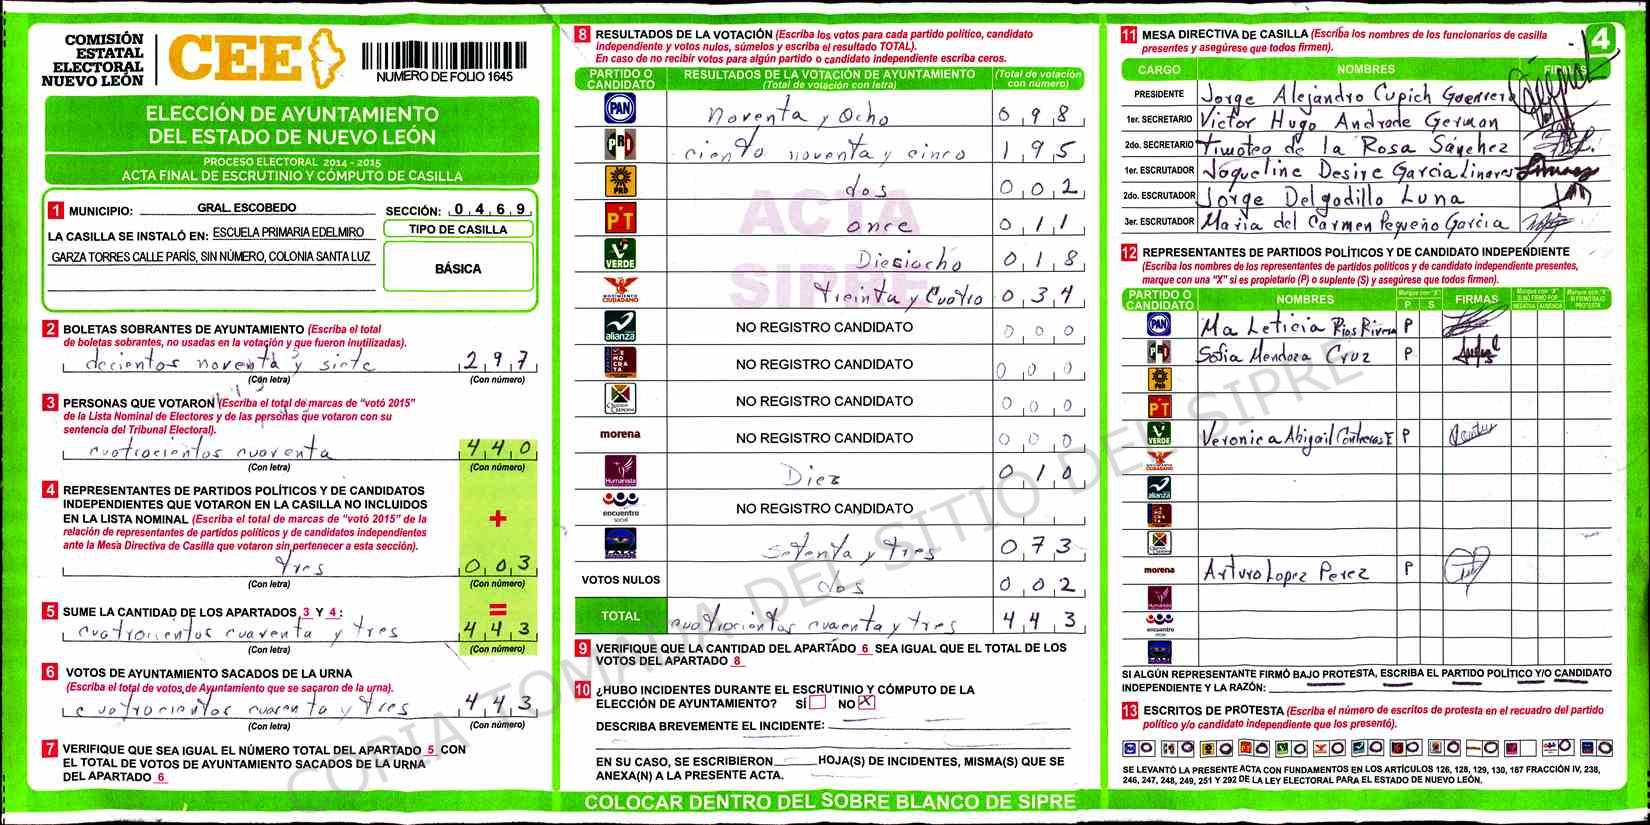 COMISIÓN
ESTATAL
ELECTORAL
NUEVO LEÓN
CEE
NUMERO DE FOLIO 1645
ELECCIÓN DE AYUNTAMIENTO
DEL ESTADO DE NUEVO LEÓN
PROCESO ELECTORAL 2014 - 2015
ACTA FINAL DE ESCRUTINIO Y CÓMPUTO DE CASILLA
1 MUNICIPIO: GRAL. ESCOBEDO SECCIÓN: 0 4 6 9
LA CASILLA SE INSTALÓ EN: ESCUELA PRIMARIA EDELMIRO
GARZA TORRES CALLE PARÍS, SIN NÚMERO, COLONIA SANTA LUZ
TIPO DE CASILLA
BÁSICA
2 BOLETAS SOBRANTES DE AYUNTAMIENTO (Escriba el total
de boletas sobrantes, no usadas en la votación y que fueron inutilizadas).
decientos noventa y siete 2 9 7
(Con letra) (Con número)
3 PERSONAS QUE VOTARON (Escriba el total de marcas de "votó 2015"
de la Lista Nominal de Electores y de las personas que votaron con su
sentencia del Tribunal Electoral).
cuatrocientos cuarenta 4 4 0
(Con letra) (Con número)
4 REPRESENTANTES DE PARTIDOS POLÍTICOS Y DE CANDIDATOS
INDEPENDIENTES QUE VOTARON EN LA CASILLA NO INCLUIDOS
EN LA LISTA NOMINAL (Escriba el total de marcas de "votó 2015" de la
relación de representantes de partidos políticos y de candidatos independientes
ante la Mesa Directiva de Casilla que votaron sin pertenecer a esta sección).
+
tres 0 0 3
(Con letra) (Con número)
5 SUME LA CANTIDAD DE LOS APARTADOS 3 Y 4: =
cuatrocientos cuarenta y tres 4 4 3
(Con letra) (Con número)
6 VOTOS DE AYUNTAMIENTO SACADOS DE LA URNA
(Escriba el total de votos de Ayuntamiento que se sacaron de la urna).
cuatrocientos cuarenta y tres 4 4 3
(Con letra) (Con número)
7 VERIFIQUE QUE SEA IGUAL EL NÚMERO TOTAL DEL APARTADO 5 CON
EL TOTAL DE VOTOS DE AYUNTAMIENTO SACADOS DE LA URNA
DEL APARTADO 6
8 RESULTADOS DE LA VOTACIÓN (Escriba los votos para cada partido político, candidato
independiente y votos nulos, súmelos y escriba el resultado TOTAL).
En caso de no recibir votos para algún partido o candidato independiente escriba ceros.
PARTIDO O CANDIDATO RESULTADOS DE LA VOTACIÓN DE AYUNTAMIENTO (Total de votación con letra) (Total de votación con número)
PAN Noventa y Ocho 0 9 8
PRI ciento noventa y cinco 1 9 5
PRD dos 0 0 2
PT once 0 1 1
VERDE Diesiocho 0 1 8
MOVIMIENTO CIUDADANO treinta y Cuatro 0 3 4
alianza NO REGISTRO CANDIDATO 0 0 0
NO REGISTRO CANDIDATO 0 0 0
NO REGISTRO CANDIDATO 0 0 0
morena NO REGISTRO CANDIDATO 0 0 0
Humanista Diez 0 1 0
encuentro social NO REGISTRO CANDIDATO
Setenta y tres 0 7 3
VOTOS NULOS dos 0 0 2
TOTAL cuatrocientos cuarenta y tres 4 4 3
ACTA
SIPRE
9 VERIFIQUE QUE LA CANTIDAD DEL APARTADO 6 SEA IGUAL QUE EL TOTAL DE LOS
VOTOS DEL APARTADO 8
10 ¿HUBO INCIDENTES DURANTE EL ESCRUTINIO Y CÓMPUTO DE LA
ELECCIÓN DE AYUNTAMIENTO? SÍ NO X
DESCRIBA BREVEMENTE EL INCIDENTE:
EN SU CASO, SE ESCRIBIERON HOJA(S) DE INCIDENTES, MISMA(S) QUE SE
ANEXA(N) A LA PRESENTE ACTA.
COLOCAR DENTRO DEL SOBRE BLANCO DE SIPRE
COPIA TOMADA DEL SITIO DEL SIPRE
11 MESA DIRECTIVA DE CASILLA (Escriba los nombres de los funcionarios de casilla
presentes y asegúrese que todos firmen).
4
CARGO NOMBRES
PRESIDENTE Jorge Alejandro Cupich Guerrero
1er. SECRETARIO Victor Hugo Andrade German
2do. SECRETARIO Timoteo de la Rosa Sánchez
1er. ESCRUTADOR Jaqueline Desire Garcia Linares
2do. ESCRUTADOR Jorge Delgadillo Luna
3er. ESCRUTADOR Maria del Carmen Pequeño Garcia
12 REPRESENTANTES DE PARTIDOS POLÍTICOS Y DE CANDIDATO INDEPENDIENTE
(Escriba los nombres de los representantes de partidos políticos y de candidato independiente presentes,
marque con una "X" si es propietario (P) o suplente (S) y asegúrese que todos firmen).
PARTIDO O CANDIDATO NOMBRES P S FIRMAS
PAN Ma Leticia Rios Rivera P
PRI Sofia Mendoza Cruz P
PRD
PT
VERDE Veronica Abigail Contreras E P
CIUDADANO
alianza
morena Arturo Lopez Perez P
Humanista
encuentro social
SI ALGÚN REPRESENTANTE FIRMÓ BAJO PROTESTA, ESCRIBA EL PARTIDO POLÍTICO Y/O CANDIDATO
INDEPENDIENTE Y LA RAZÓN:
13 ESCRITOS DE PROTESTA (Escriba el número de escritos de protesta en el recuadro del partido
político y/o candidato independiente que los presentó).
SE LEVANTÓ LA PRESENTE ACTA CON FUNDAMENTOS EN LOS ARTÍCULOS 126, 128, 129, 130, 187 FRACCIÓN IV, 238,
246, 247, 248, 249, 251 Y 292 DE LA LEY ELECTORAL PARA EL ESTADO DE NUEVO LEÓN.